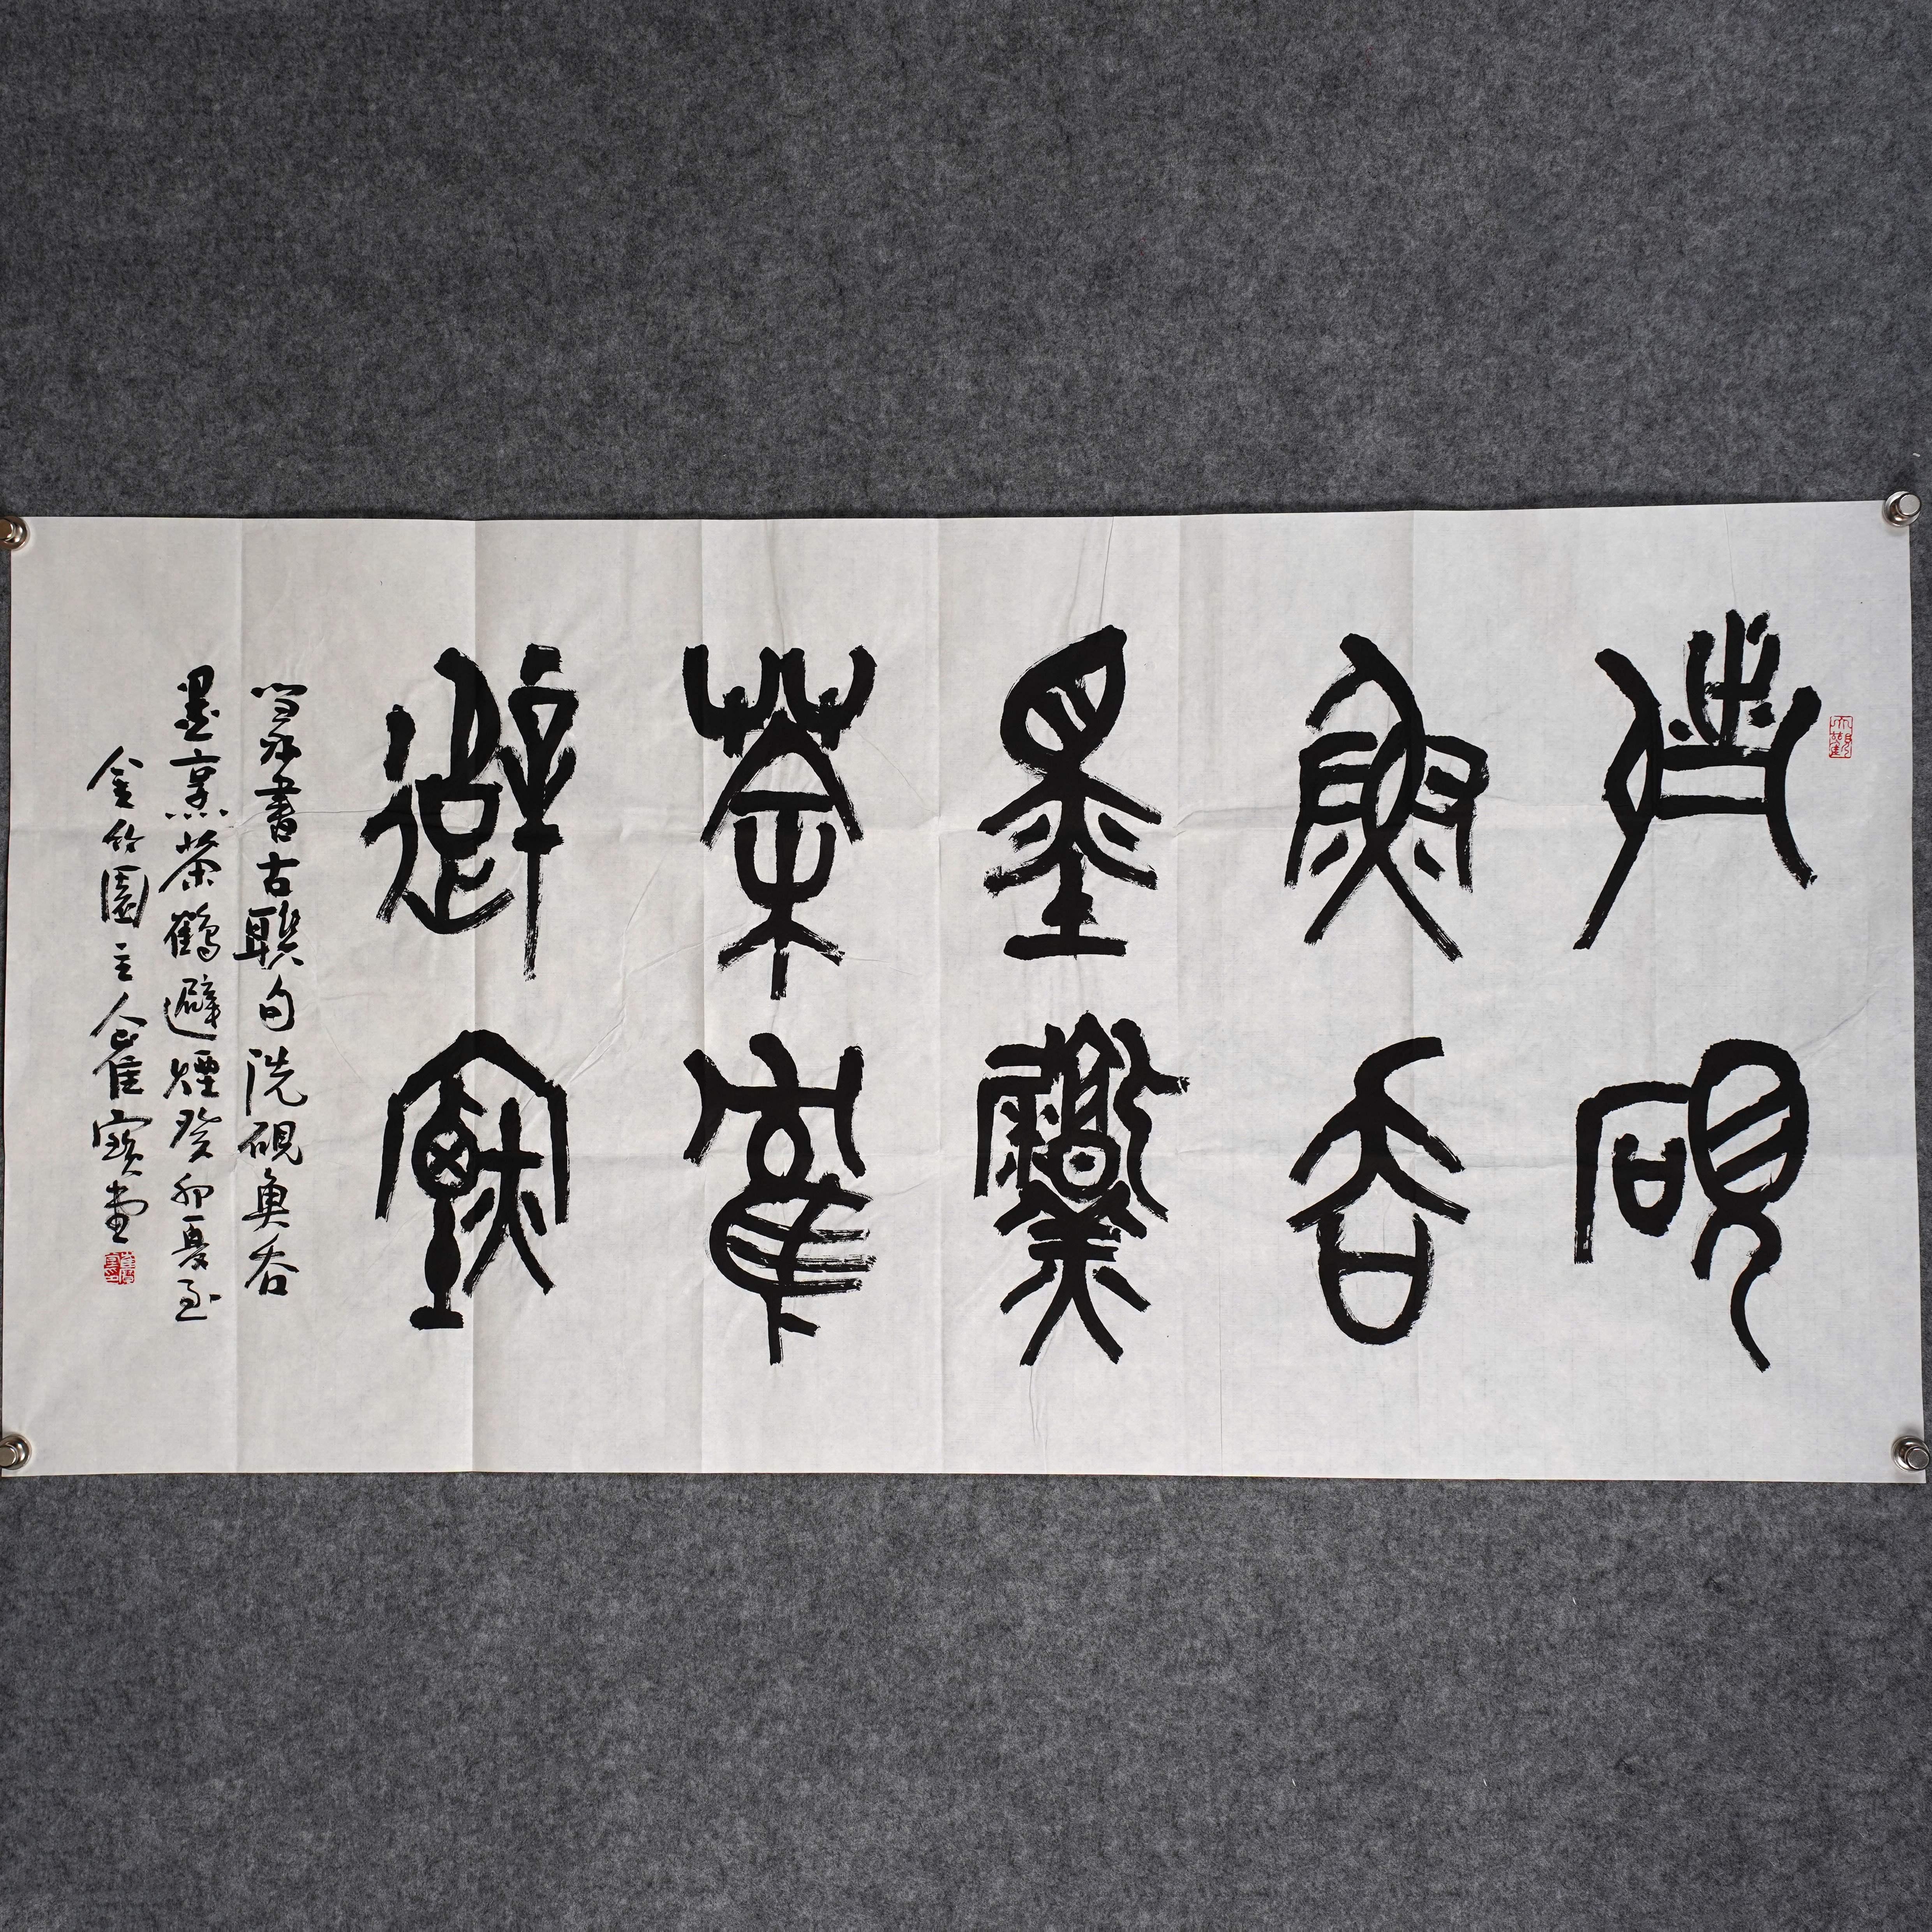 洗硯
魚吞
墨烹
茶鶴
避煙
書古聯句洗硯魚吞
墨烹茶鶴避煙癸卯夏至
金竹園主人崔寶堂